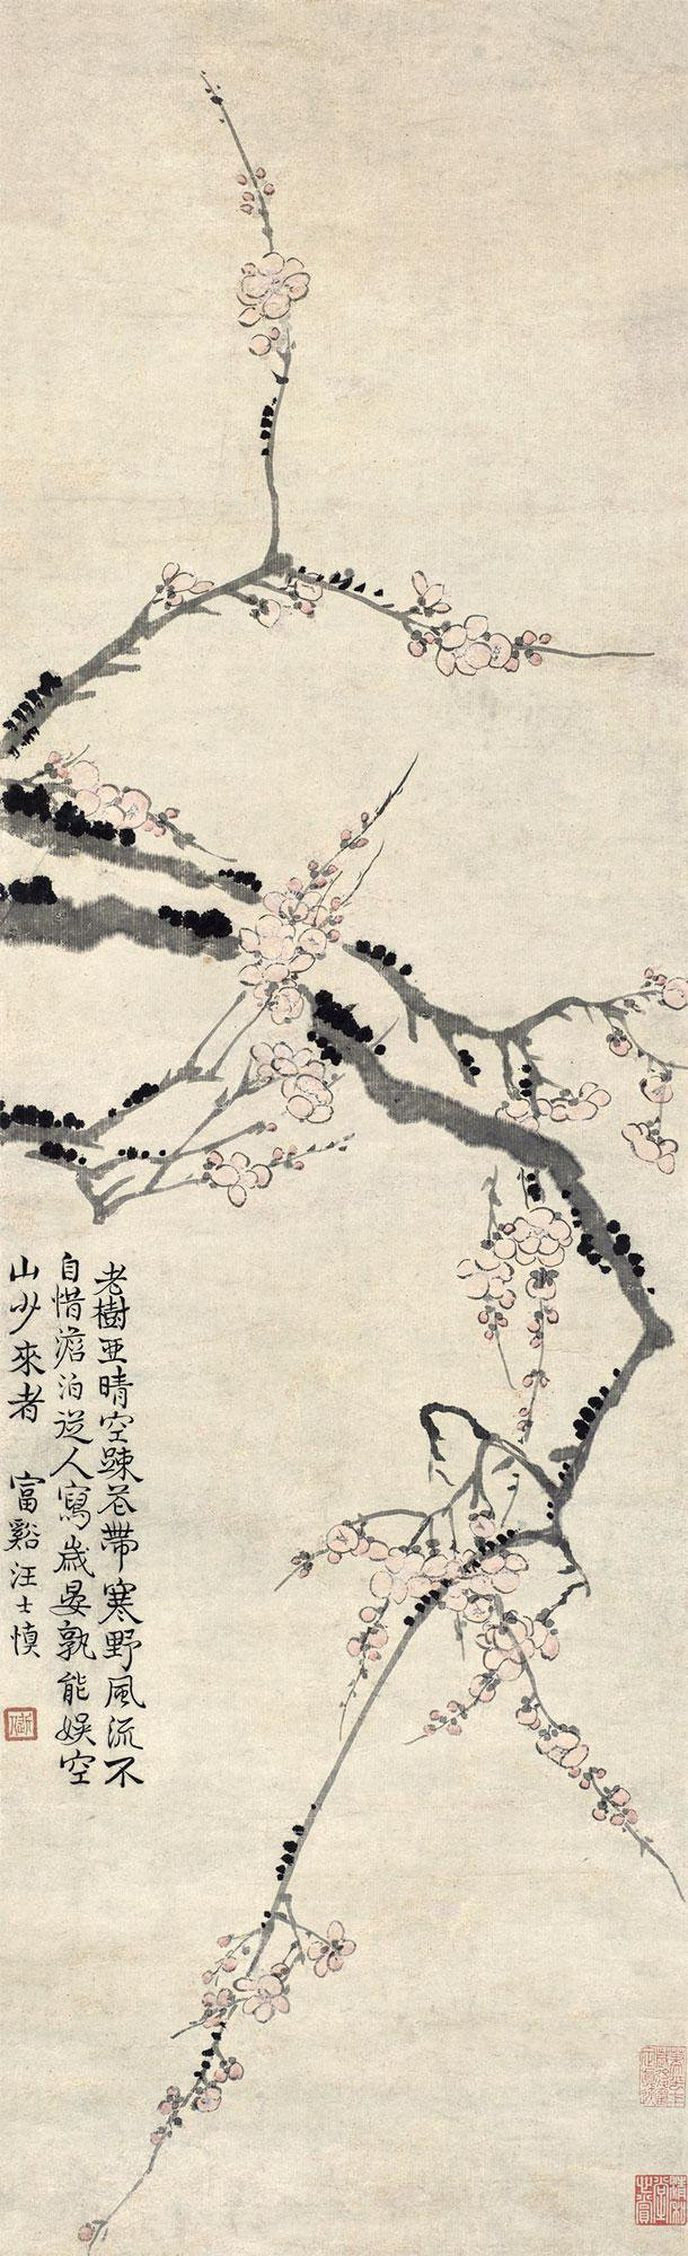 老樹亚晴空踈花帶寒野風流不
自惜澹泊從人寫歲晏孰能娛空
山少來者　富谿汪士慎